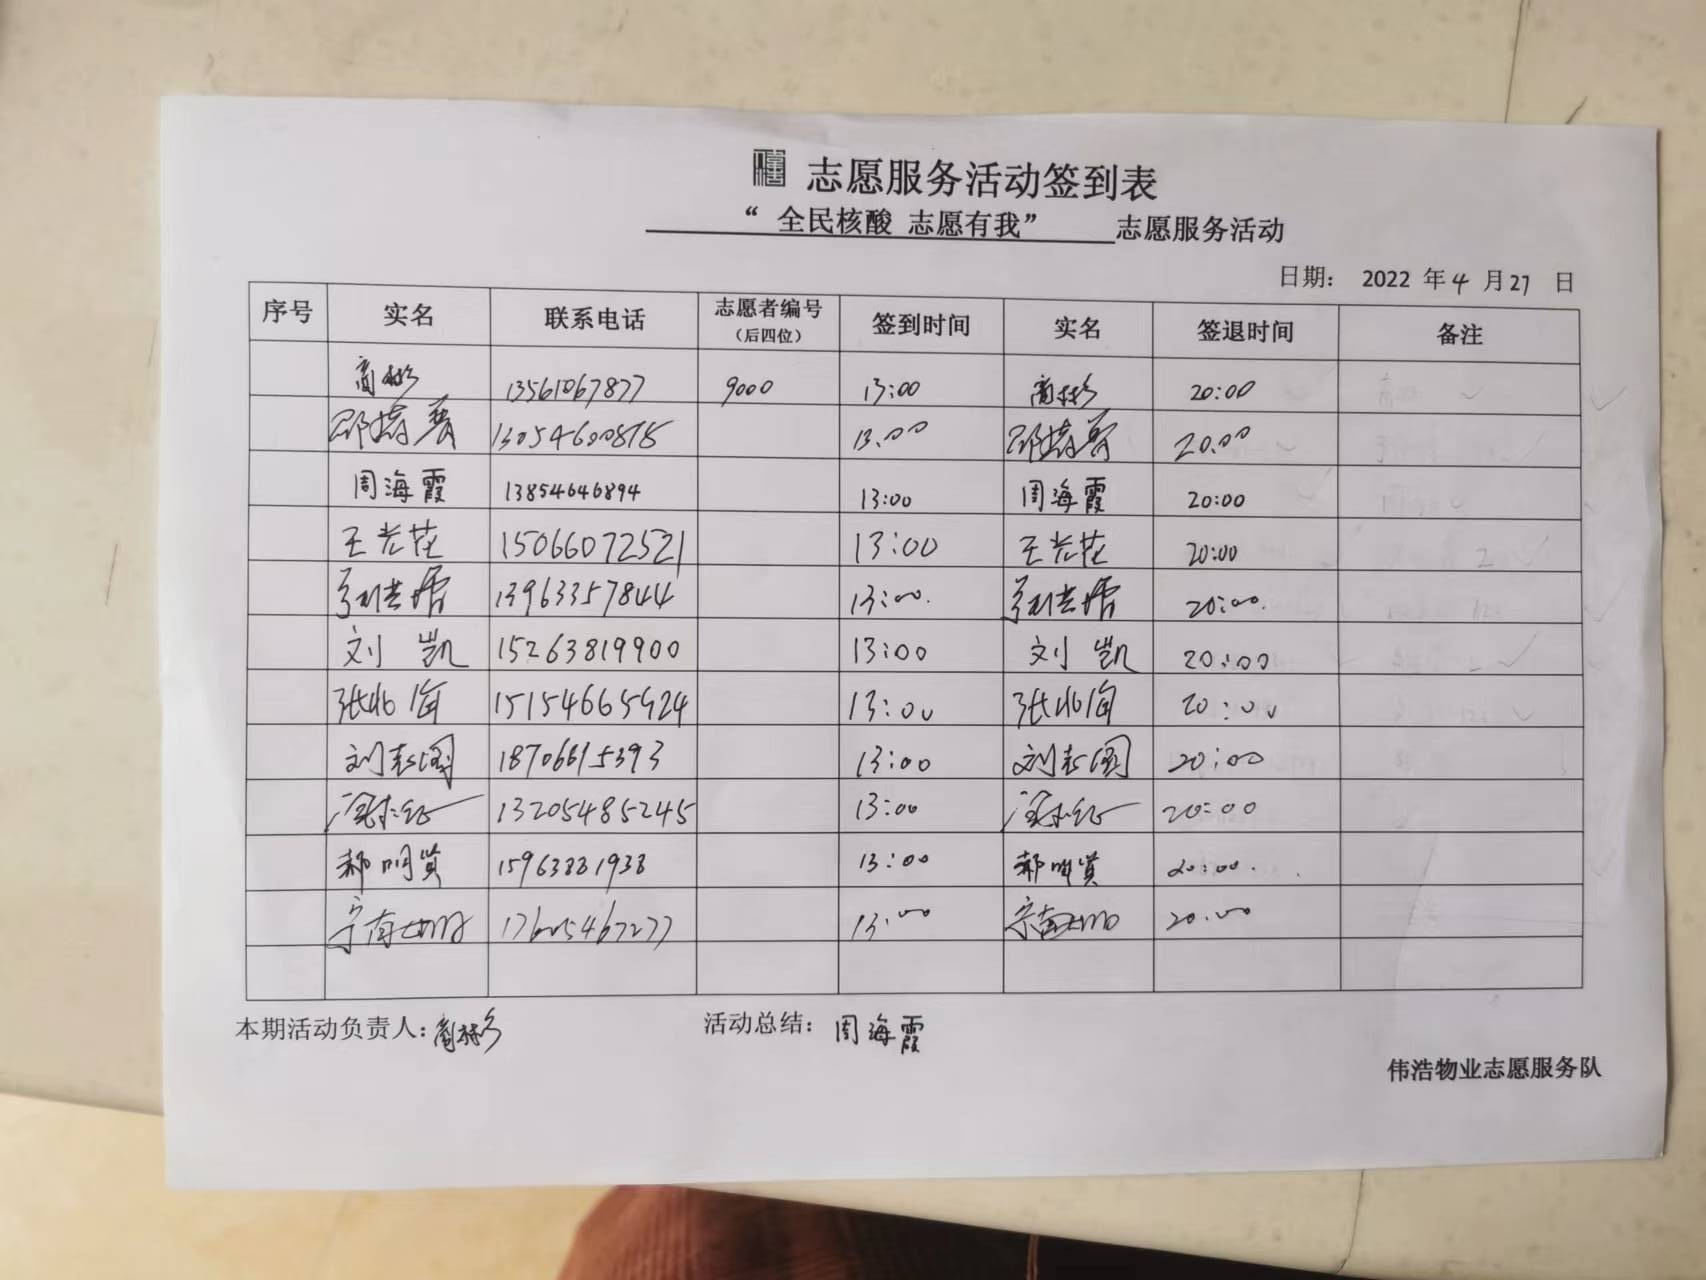 志愿服务活动签到表
“ 全民核酸 志愿有我” 志愿服务活动
日期： 2022 年 4 月 27 日
序号 实名 联系电话 志愿者编号（后四位） 签到时间 实名 签退时间 备注
商彬 13561067877 9000 13:00 商彬 20:00
13054600875 13.00 20.00
周海霞 13854646894 13:00 周海霞 20:00
王光花 15066072521 13:00 王光花 20:00
13963357844 13:00. 20:00.
刘凯 15263819900 13:00 刘凯 20:00
15154665924 13:00 20:00
刘志国 18706615393 13:00 刘志国 20:00
13205485245 13:00 20:00
郝明贤 15963881938 13:00 郝明贤 20:00.
17605467277 13:00 20.00
本期活动负责人：商彬 活动总结： 周海霞
伟浩物业志愿服务队